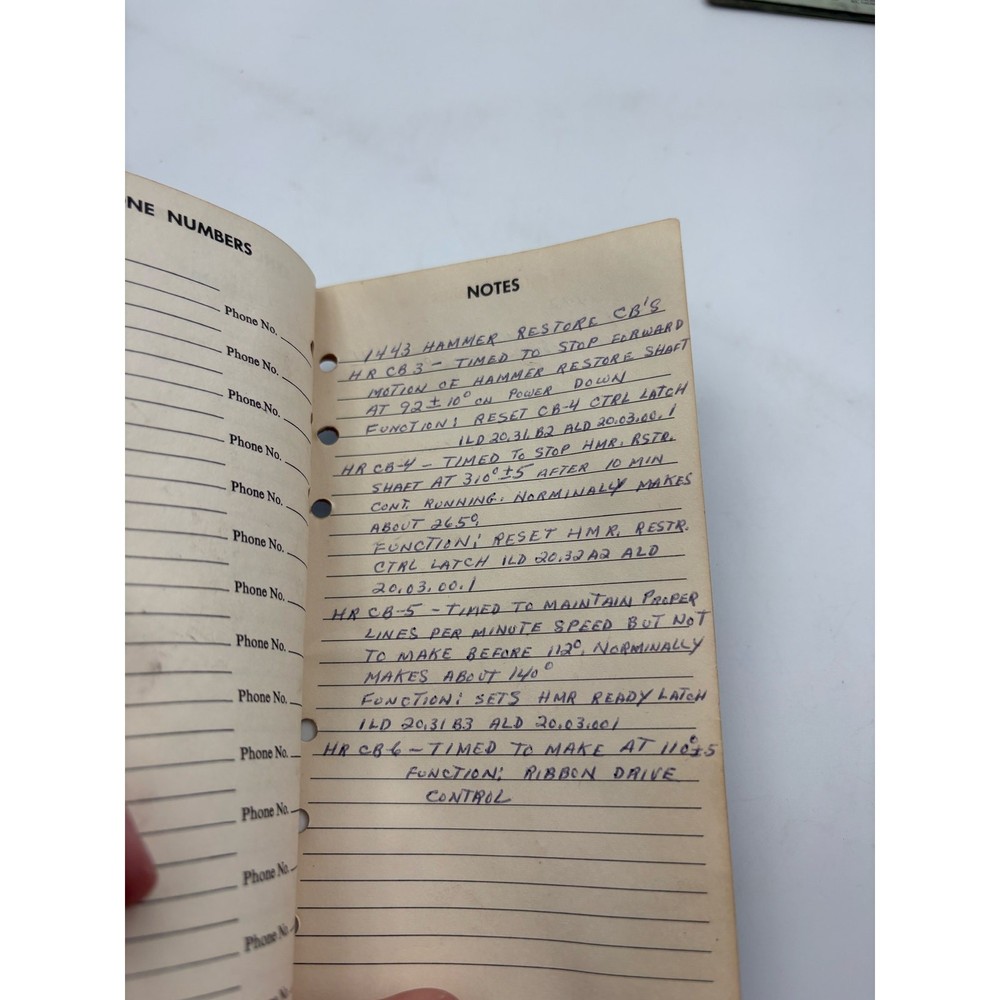 NE NUMBERS
Phone No.
Phone No.
Phone No.
Phone No.
Phone No.
Phone No.
Phone No.
Phone No.
Phone No.
Phone No.
Phone No.
Phone No.
Phone No
No.
NOTES
1443 HAMMER RESTORE CB'S
HR CB3 - TIMED TO STOP FORWARD
MOTION OF HAMMER RESTORE SHAFT
AT 92 ± 10° ON POWER DOWN
FUNCTION: RESET CB-4 CTRL LATCH
ILD 20.31.B2 ALD 20.03.00.1
HR CB-4 - TIMED TO STOP HMR. RSTR.
SHAFT AT 310° ±5 AFTER 10 MIN
CONT. RUNNING. NORMINALLY MAKES
ABOUT 265°.
FUNCTION: RESET HMR. RESTR.
CTRL LATCH ILD 20.32A2 ALD
20.03.00.1
HR CB-5 - TIMED TO MAINTAIN PROPER
LINES PER MINUTE SPEED BUT NOT
TO MAKE BEFORE 112°. NORMINALLY
MAKES ABOUT 140°
FUNCTION: SETS HMR READY LATCH
ILD 20.31 B3 ALD 20.03.001
HR CB6 - TIMED TO MAKE AT 110°±5
FUNCTION: RIBBON DRIVE
CONTROL